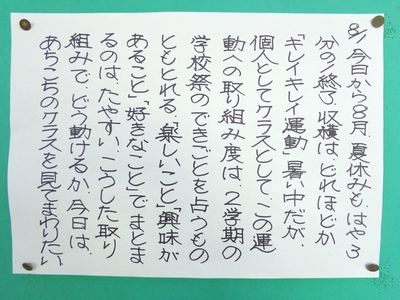 8/1 今日から8月、夏休みも、はや1/3
分の終了、収穫は、どれほどか
「キレイキレイ運動」暑い中だが、
個人としてクラスとして、この運
動への取り組み度は、2学期の
学校祭のできごとを占うもの
ともとれる、「楽しいこと」「興味が
あること」「好きなこと」でまとま
るのは、たやすい、こうした取り
組みで、どう動けるか、今日は、
あちこちのクラスを見てまわりたい